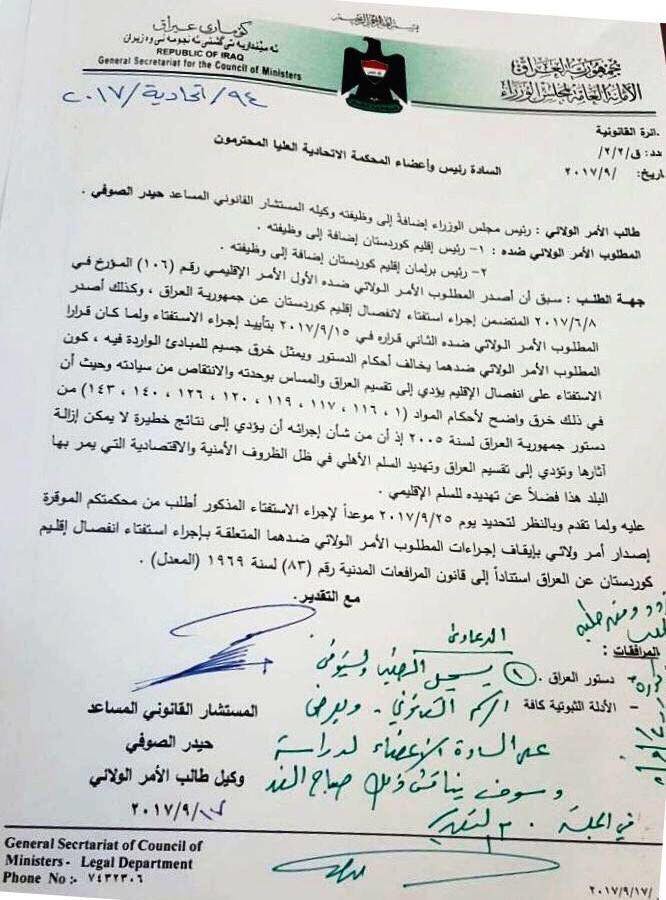 كوماری عیراق
REPUBLIC OF IRAQ
General Secretariat for the Council of Ministers
جمهورية العراق
الأمانة العامة لمجلس الوزراء
٩٤/اتحادية/٢٠١٧
ائرة القانونية
عدد: ق/٢/٢/
اريخ: /٢٠١٧/٩
السادة رئيس وأعضاء المحكمة الاتحادية العليا المحترمون
طالب الأمر الولائي : رئيس مجلس الوزراء إضافةً إلى وظيفته وكيله المستشار القانوني المساعد حيدر الصوفي .
المطلوب الأمر الولائي ضده : ١- رئيس إقليم كوردستان إضافة إلى وظيفته .
٢- رئيس برلمان إقليم كوردستان إضافة إلى وظيفته .
جهة الطلب : سبق أن أصدر المطلوب الأمر الولائي ضده الأول الأمر الإقليمي رقم (١٠٦) المؤرخ في
٢٠١٧/٦/٨ المتضمن إجراء استفتاء لانفصال إقليم كوردستان عن جمهورية العراق ، وكذلك أصدر
المطلوب الأمر الولائي ضده الثاني قراره في ٢٠١٧/٩/١٥ بتأييد إجراء الاستفتاء ولما كان قرارا
المطلوب الأمر الولائي ضدهما يخالف أحكام الدستور ويمثل خرق جسيم للمبادئ الواردة فيه ، كون
الاستفتاء على انفصال الإقليم يؤدي إلى تقسيم العراق والمساس بوحدته والانتقاص من سيادته وحيث أن
في ذلك خرق واضح لأحكام المواد (١ ، ١١٦ ، ١١٧ ، ١١٩ ، ١٢٠ ، ١٢٦ ، ١٤٠ ، ١٤٣) من
دستور جمهورية العراق لسنة ٢٠٠٥ إذ أن من شأن إجرائه أن يؤدي إلى نتائج خطيرة لا يمكن إزالة
آثارها وتؤدي إلى تقسيم العراق وتهديد السلم الأهلي في ظل الظروف الأمنية والاقتصادية التي يمر بها
البلد هذا فضلاً عن تهديده للسلم الإقليمي .
عليه ولما تقدم وبالنظر لتحديد يوم ٢٠١٧/٩/٢٥ موعداً لإجراء الاستفتاء المذكور أطلب من محكمتكم الموقرة
إصدار أمر ولائي بإيقاف إجراءات المطلوب الأمر الولائي ضدهما المتعلقة بإجراء استفتاء انفصال إقليم
كوردستان عن العراق استناداً إلى قانون المرافعات المدنية رقم (٨٣) لسنة ١٩٦٩ (المعدل) .
مع التقدير.
المرافقات :
- دستور العراق .
- الأدلة الثبوتية كافة
الدعاوى
١ يسجل الطلب ويستوفى
الرسم القانوني - ويعرض
على السادة الأعضاء لدراسة
وسوف يناقش ذلك صباح الغد
في الجلسة
المستشار القانوني المساعد
حيدر الصوفي
وكيل طالب الأمر الولائي
٢٠١٧/٩/١٧
General Secrtariat of Council of
Ministers - Legal Department
Phone No :- ٧٤٣٢٣٠٦
٢٠١٧/٩/١٧